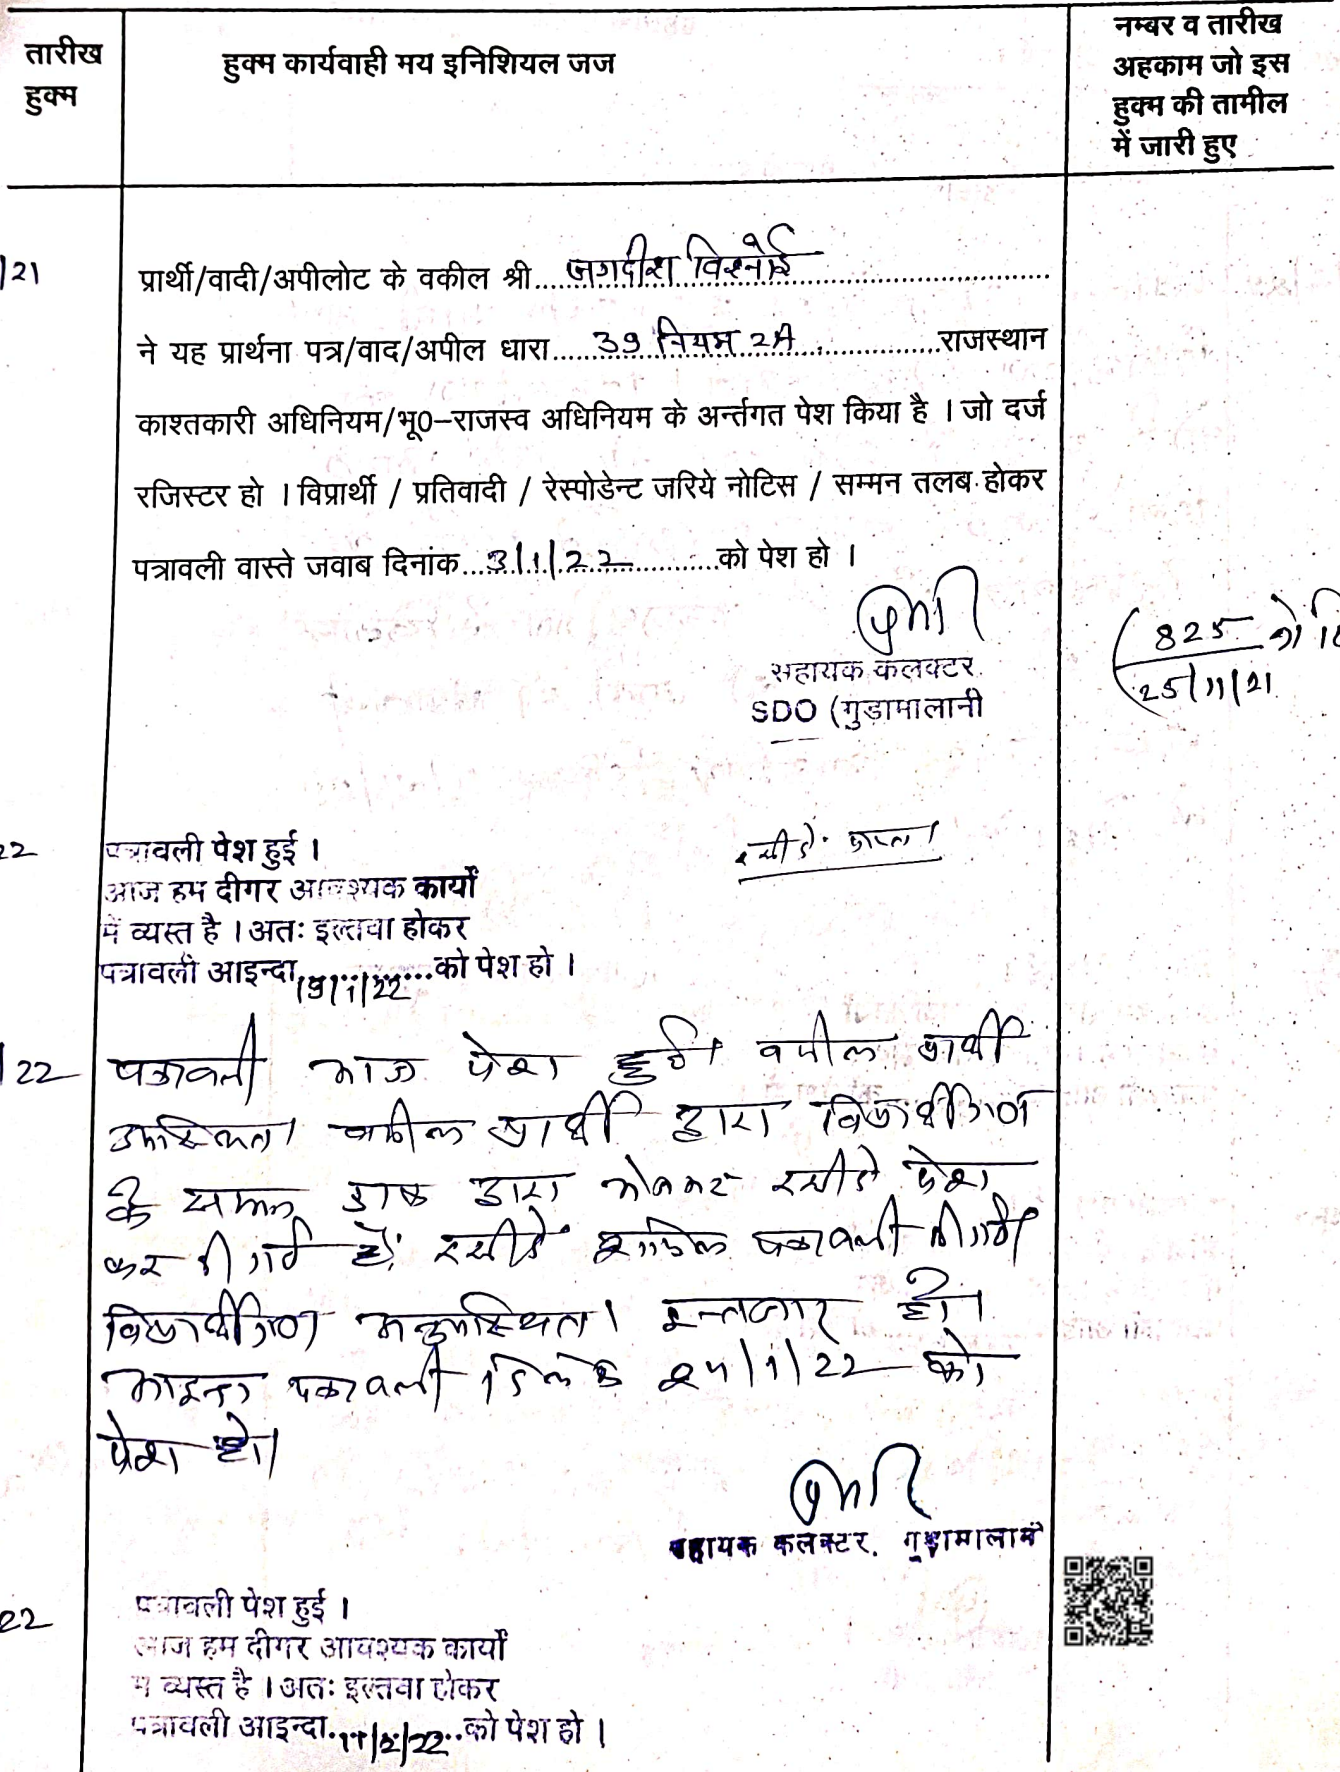 तारीख
हुक्म
हुक्म कार्यवाही मय इनिशियल जज
नम्बर व तारीख
अहकाम जो इस
हुक्म की तामील
में जारी हुए
/21
प्रार्थी/वादी/अपीलोट के वकील श्री....जगदीश विश्नोई....
ने यह प्रार्थना पत्र/वाद/अपील धारा....39 नियम 2A....राजस्थान
काश्तकारी अधिनियम/भू0-राजस्व अधिनियम के अर्न्तगत पेश किया है । जो दर्ज
रजिस्टर हो । विप्रार्थी / प्रतिवादी / रेस्पोडेन्ट जरिये नोटिस / सम्मन तलब होकर
पत्रावली वास्ते जवाब दिनांक...3/1/22....को पेश हो ।
सहायक कलक्टर
SDO (गुडामालानी
825
25/11/21
22
पत्रावली पेश हुई ।
आज हम दीगर आवश्यक कार्यों
में व्यस्त है । अतः इल्तवा होकर
पत्रावली आइन्दा 19/1/22 को पेश हो ।
/22
पत्रावली आज पेश हुई। वकील प्रार्थी
उपस्थित। वकील प्रार्थी द्वारा विप्रार्थीगण
के डाक द्वारा रसीदे पेश
कर दी गई है। रसीदे शामिल पत्रावली की गई
विप्रार्थीगण अनुपस्थित। इन्तजार हो।
आइन्दा पत्रावली दिनांक 24/1/22 को
पेश हो।
सहायक कलक्टर. गुडामालानी
22
पत्रावली पेश हुई ।
आज हम दीगर आवश्यक कार्यों
में व्यस्त है । अतः इल्तवा होकर
पत्रावली आइन्दा..11/2/22..को पेश हो ।